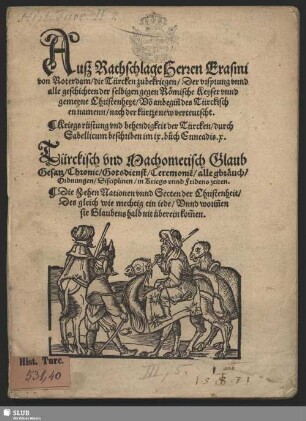 Auß Rathschlage Herren Erasmi
von Roterdam / die Türcken zubekriegen / Der vrsprung vnnd
alle geschichten der selbigen gegen Römische Keyser vnnd
gemeyne Christenheyt / Vō anbegiñ des Türckisch
en namenn / nach der kürtze new verteutscht.
Kriegs rüstung vnd behendigkeit der Türcken / durch
Sabellicum beschriben im ix. bůch Enneadis. x.
Türckisch vnd Machometisch Glaub
Gesatz / Chronic / Gotsdienst / Ceremoniē / alle gbräuch /
Ordnungen / Disciplinen / in Kriegs vnnd fridens zeiten.
Die Zehen Nationen vnnd Secten der Christenheit /
Des gleich wie mechtig ein iede / Vnnd worinnen
sie Glaubens halb nit überein kommen.
Hist. Turc.
531,40
SLUB